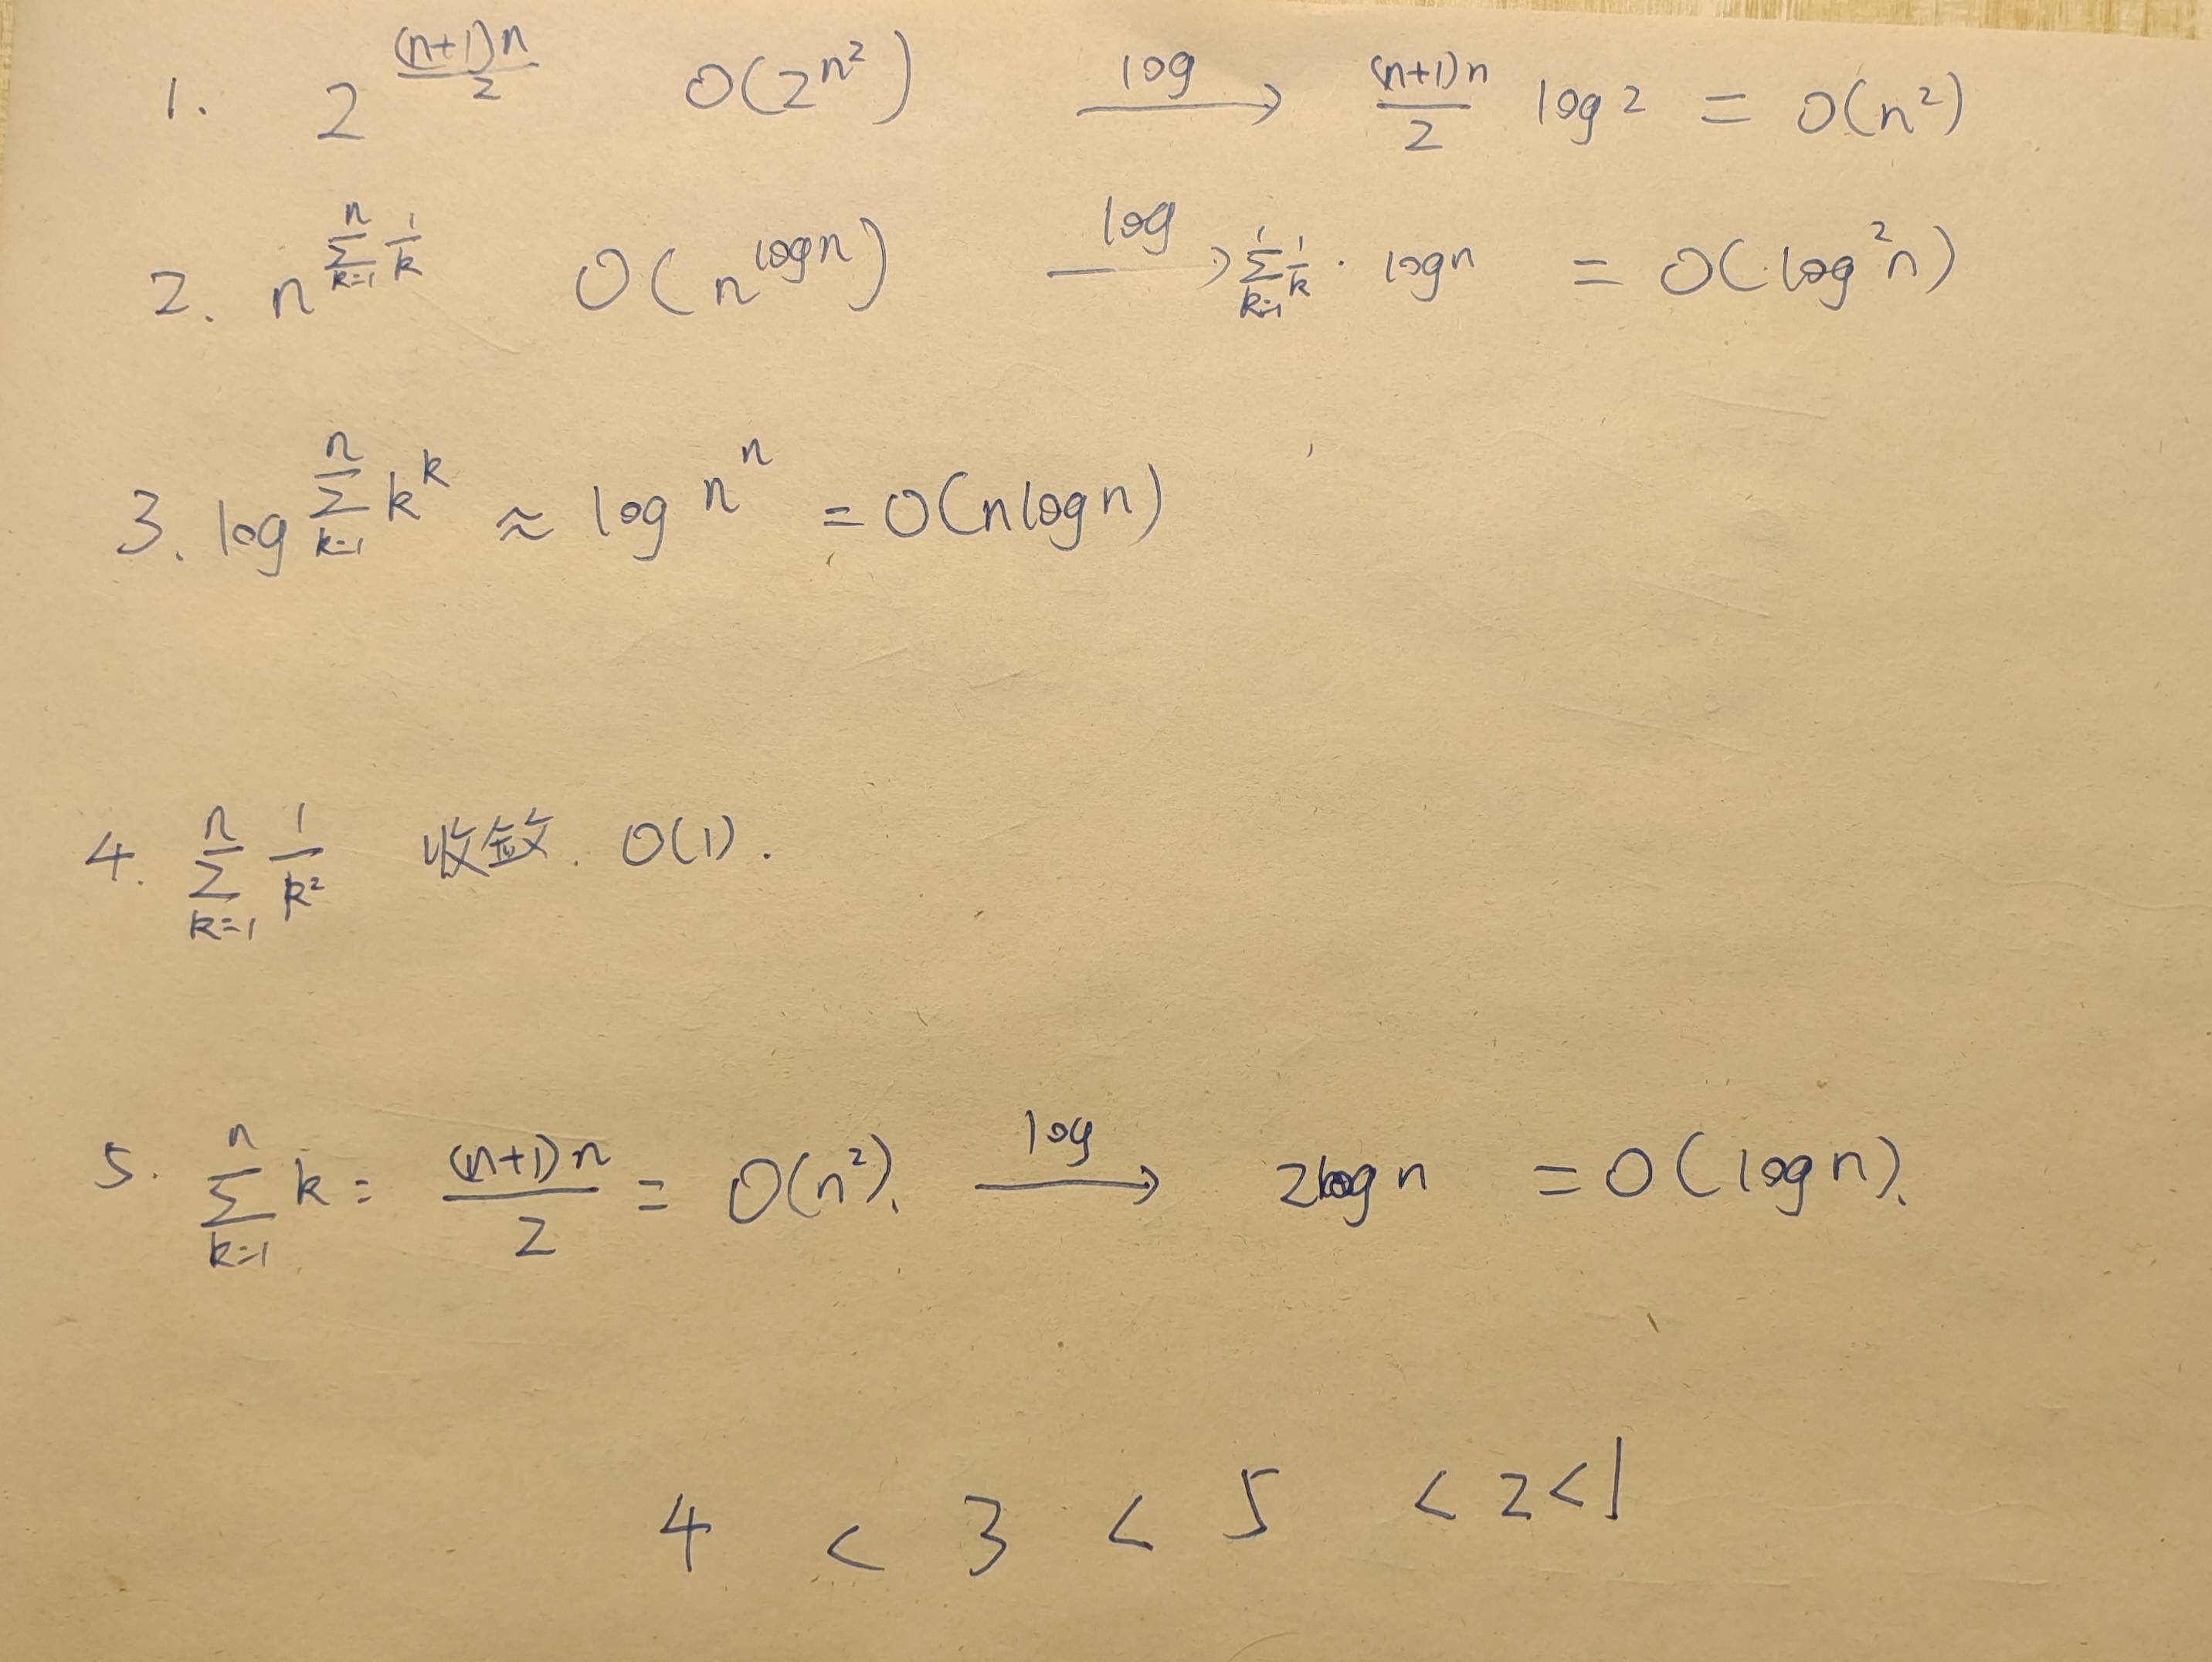 1. 2^{\frac{(n+1)n}{2}} O(2^{n^2}) \xrightarrow{log} \frac{(n+1)n}{2} log 2 = O(n^2)
2. n^{\sum_{k=1}^{n} \frac{1}{k}} O(n^{logn}) \xrightarrow{log} \sum_{k=1}^{1} \frac{1}{k} · logn = O(log^2 n)
3. log \sum_{k=1}^{n} k^k ≈ log n^n = O(nlogn)
4. \sum_{k=1}^{n} \frac{1}{k^2} 收敛. O(1).
5. \sum_{k=1}^{n} k = \frac{(n+1)n}{2} = O(n^2). \xrightarrow{log} 2logn = O(logn).
4 < 3 < 5 < 2 < 1